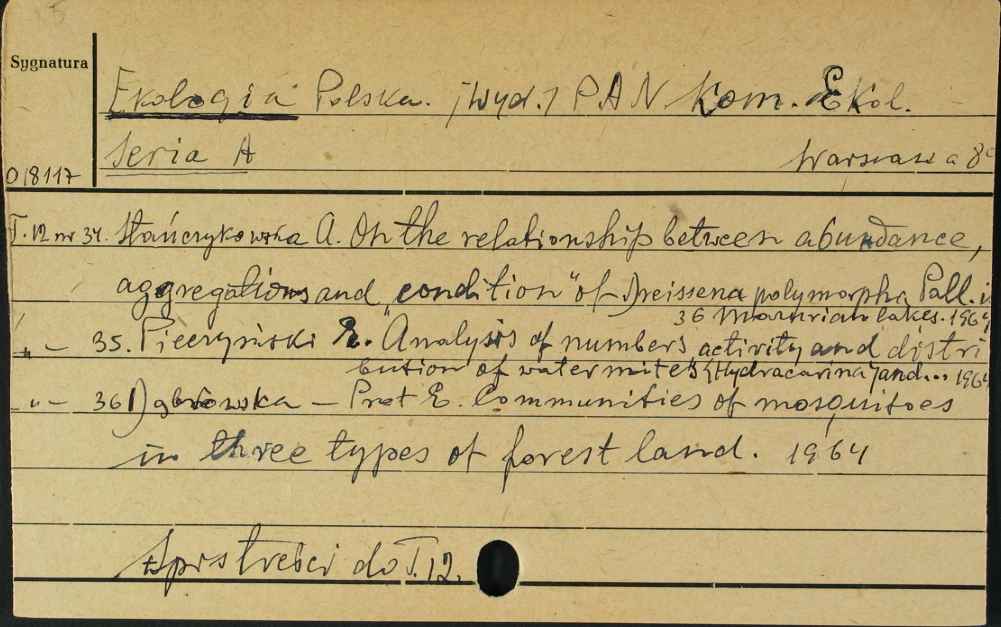 Sygnatura
Ekologia Polska. /Wyd./ PAN Kom. Ekol.
Seria A
Warszawa 8°
018117
T.12 nr 34. Stańczykowska A. On the relationship between abundance,
aggregations and "condition" of Dreissena polymorpha Pall. i
36 Mazurian lakes. 1964
-"- 35. Pieczyński E. Analysis of numbers, activity and distri
bution of water mites (Hydracarina) and... 1964
-"- 36 Dąbrowska - Prot E. Communities of mosquitoes
in three types of forest land. 1964
Spis treści do T.12.